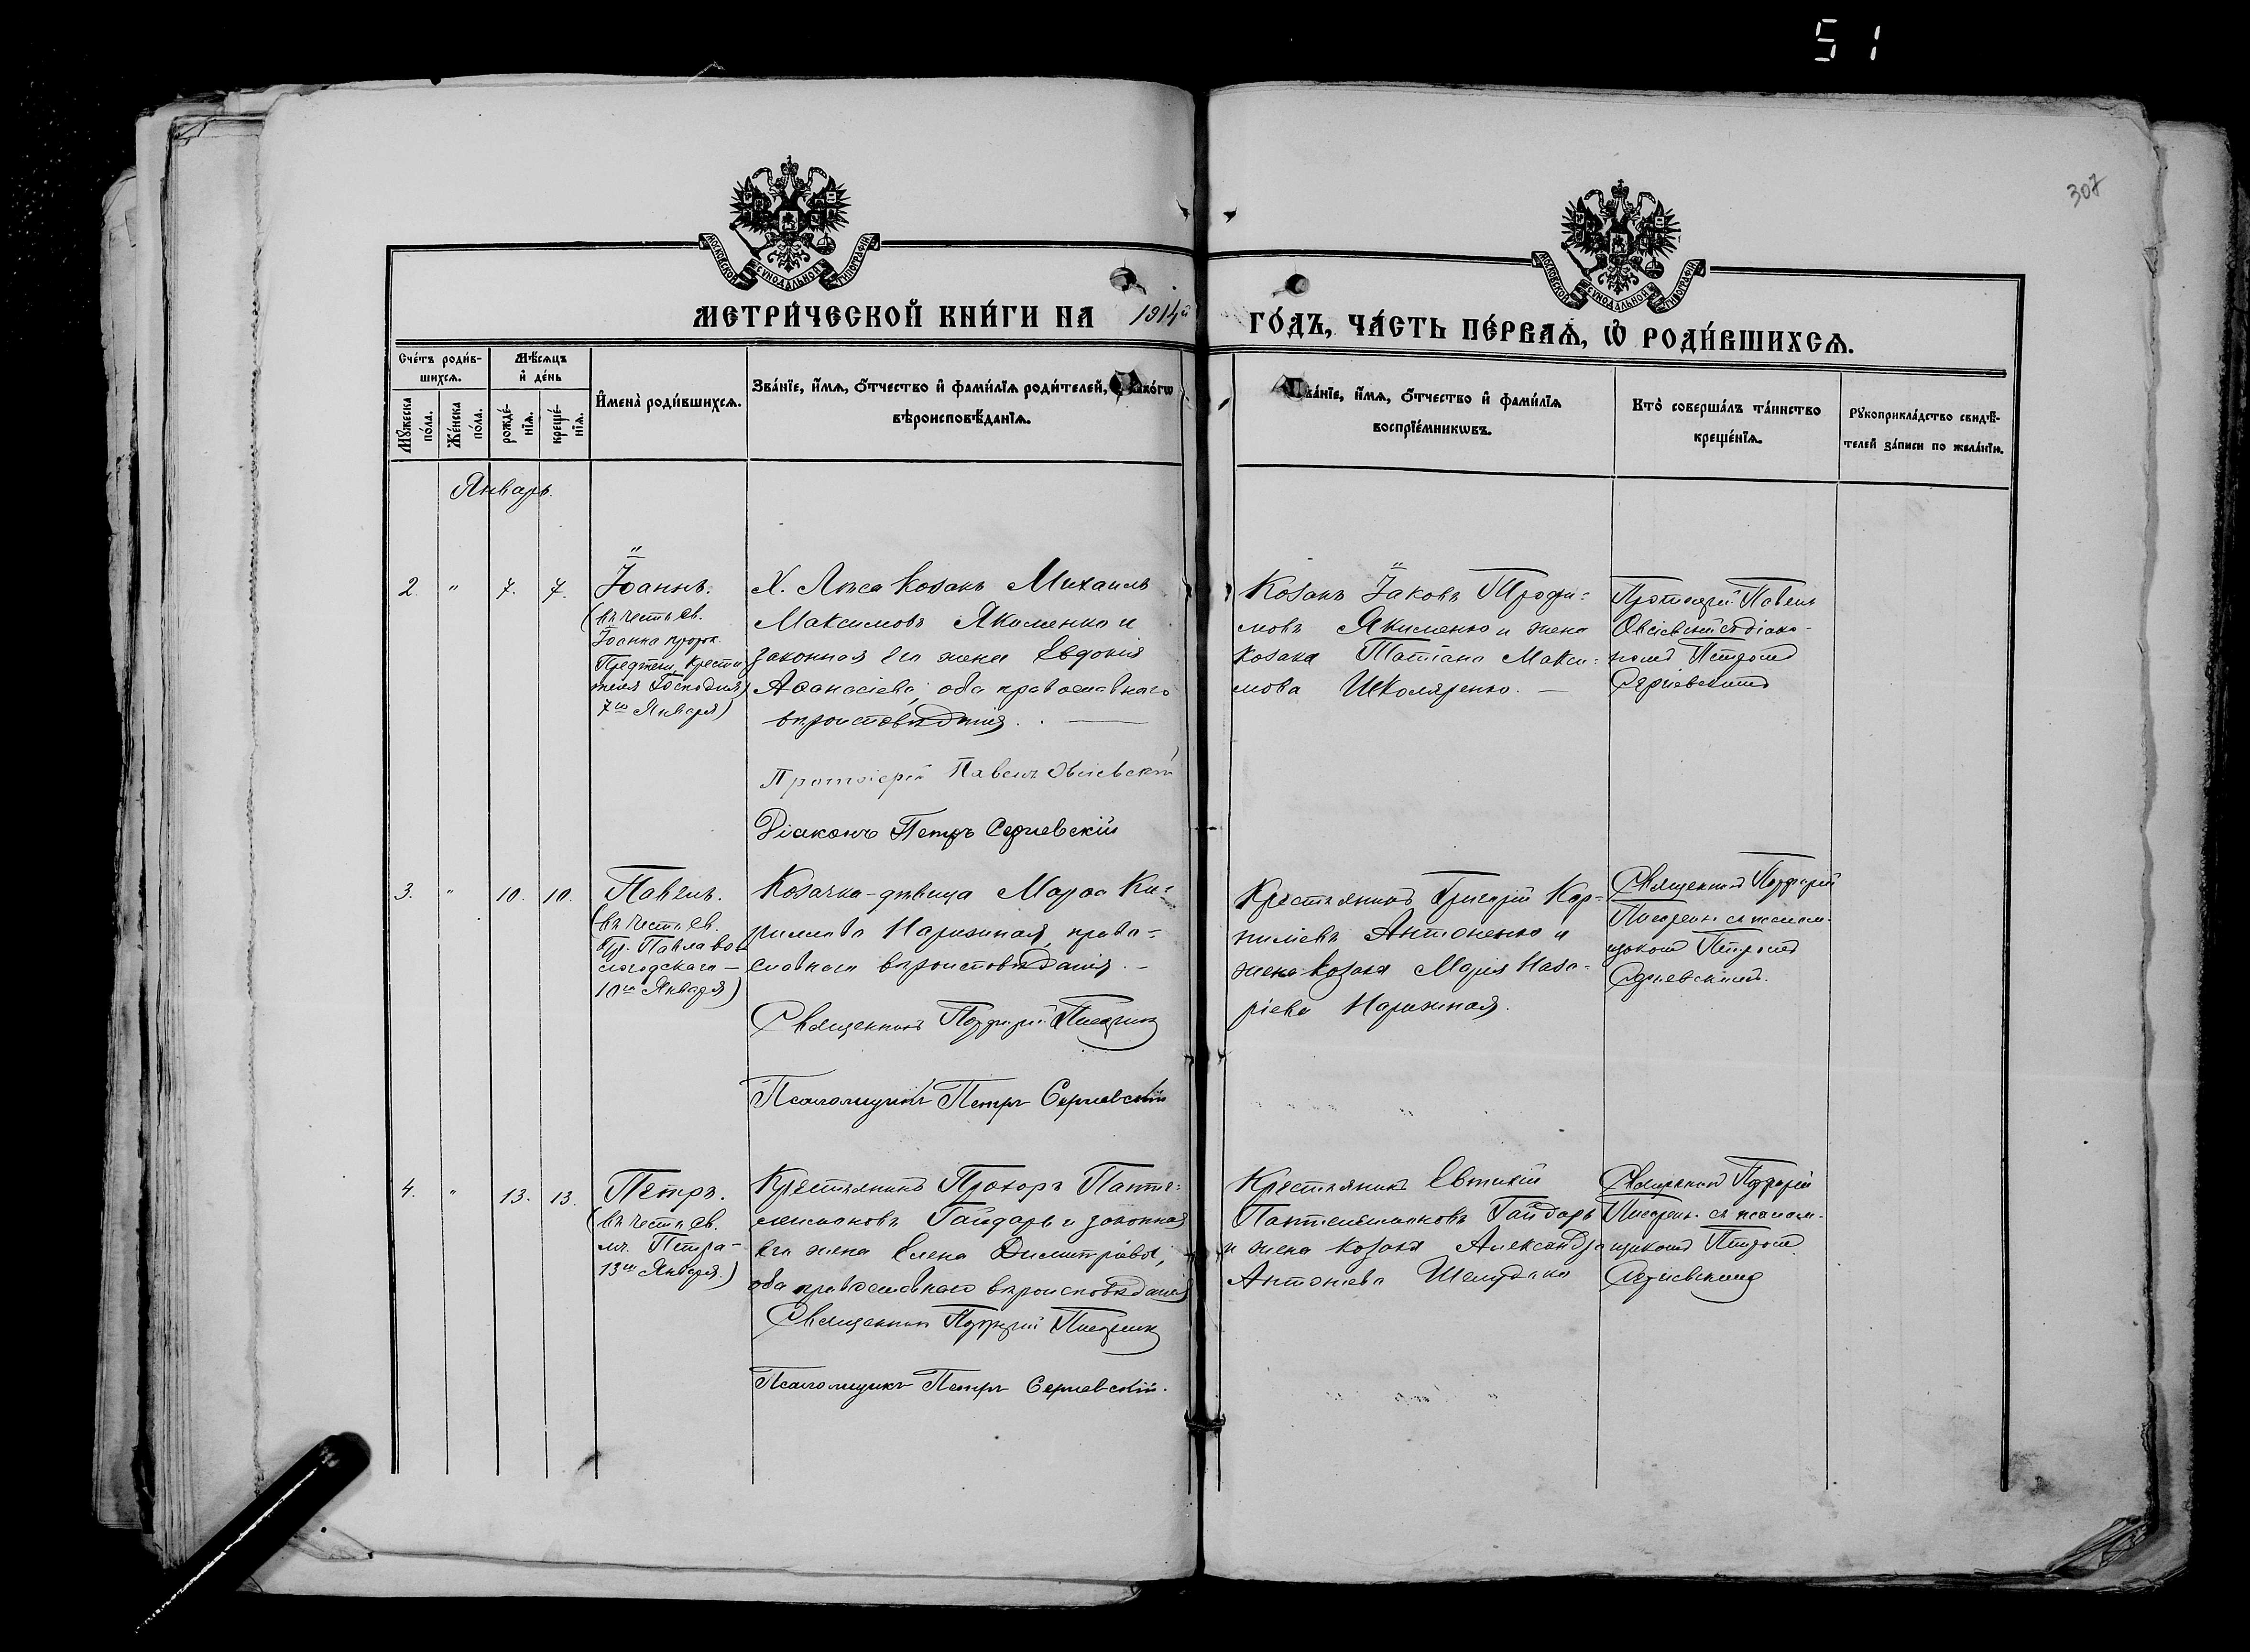 51
307
МОСКОВСКОЙ СѴНОДАЛЬНОЙ ТИПОГРАФІИ
МОСКОВСКОЙ СѴНОДАЛЬНОЙ ТИПОГРАФІИ
МЕТРИ́ЧЕСКОЙ КНИ́ГИ НА 1914й
ГО́ДЪ, ЧА́СТЬ ПЕ́РВАѦ, Ѡ҆ РОДИ́ВШИХСѦ.
Сче́тъ роди́в-
шихсѧ.
Мѣ́сѧцъ
и҆ де́нь
Мꙋ́жеска
по́ла.
Же́нска
по́ла.
рожде́-
нїѧ.
креще́-
нїѧ.
И҆мена̀ роди́вшихсѧ.
Зва́нїе, и҆́мѧ, ѻ҆́тчество и҆ фами́лїѧ роди́телей, и҆ како́гѡ
вѣроисповѣ́данїѧ.
Зва́нїе, и҆́мѧ, ѻ҆́тчество и҆ фами́лїѧ
воспрїе́мникѡвъ.
Кто̀ соверша́лъ та́инство
креще́нїѧ.
Рꙋкоприкла́дство свидѣ́-
телей за́писи по жела́нїю.
Январь.
2. " 7. 7.
Іоаннъ.
(въ честь св.
Іоанна пророк.
Предтечи, Крести
теля Господня,
7го Января)
Х. Лѣса Козакъ Михаилъ
Максимовъ Якименко и
законная его жена Евдокія
Аѳанасіева, оба православнаго
вѣроисповѣданія.
Протоіерей Павелъ Овсіевскій
Діаконъ Петръ Сергіевскій
Козакъ Іаковъ Трофи=
мовъ Якименко и жена
козака Татіана Макси=
мова Школяренко. —
Протоіерей Павелъ
Овсіевскій съ діако-
номъ Петромъ
Сергіевскимъ
3. " 10. 10.
Павелъ.
(въ честь св.
Пр. Павла Во
логодскаго —
10го Января)
Козачка-дѣвица Марѳа Ки=
риллова Нарижная, право=
славнаго вѣроисповѣданія. —
Священникъ Порфирій
Псаломщикъ Петръ Сергіевскій
Крестьянинъ Григорій Кор-
ниліевъ Антоненко и
жена козака Марія Наза-
ріева Нарижная.
Священникъ Порфирій
съ псалом-
щикомъ Петромъ
Сергіевскимъ.
4. " 13. 13.
Петръ.
(въ честь св.
мч. Петра —
13го Января.)
Крестьянинъ Прохоръ Панте=
леимоновъ Гайдарь и законная
его жена Елена Димитріева,
оба православнаго вѣроисповѣданія
Священникъ Порфирій
Псаломщикъ Петръ Сергіевскій.
Крестьянинъ Евтихій
Пантелеимоновъ Гайдарь
и жена козака Александра
Антоніева Шелудько
Священникъ Порфирій
съ псалом-
щикомъ Петромъ
Сергіевскимъ